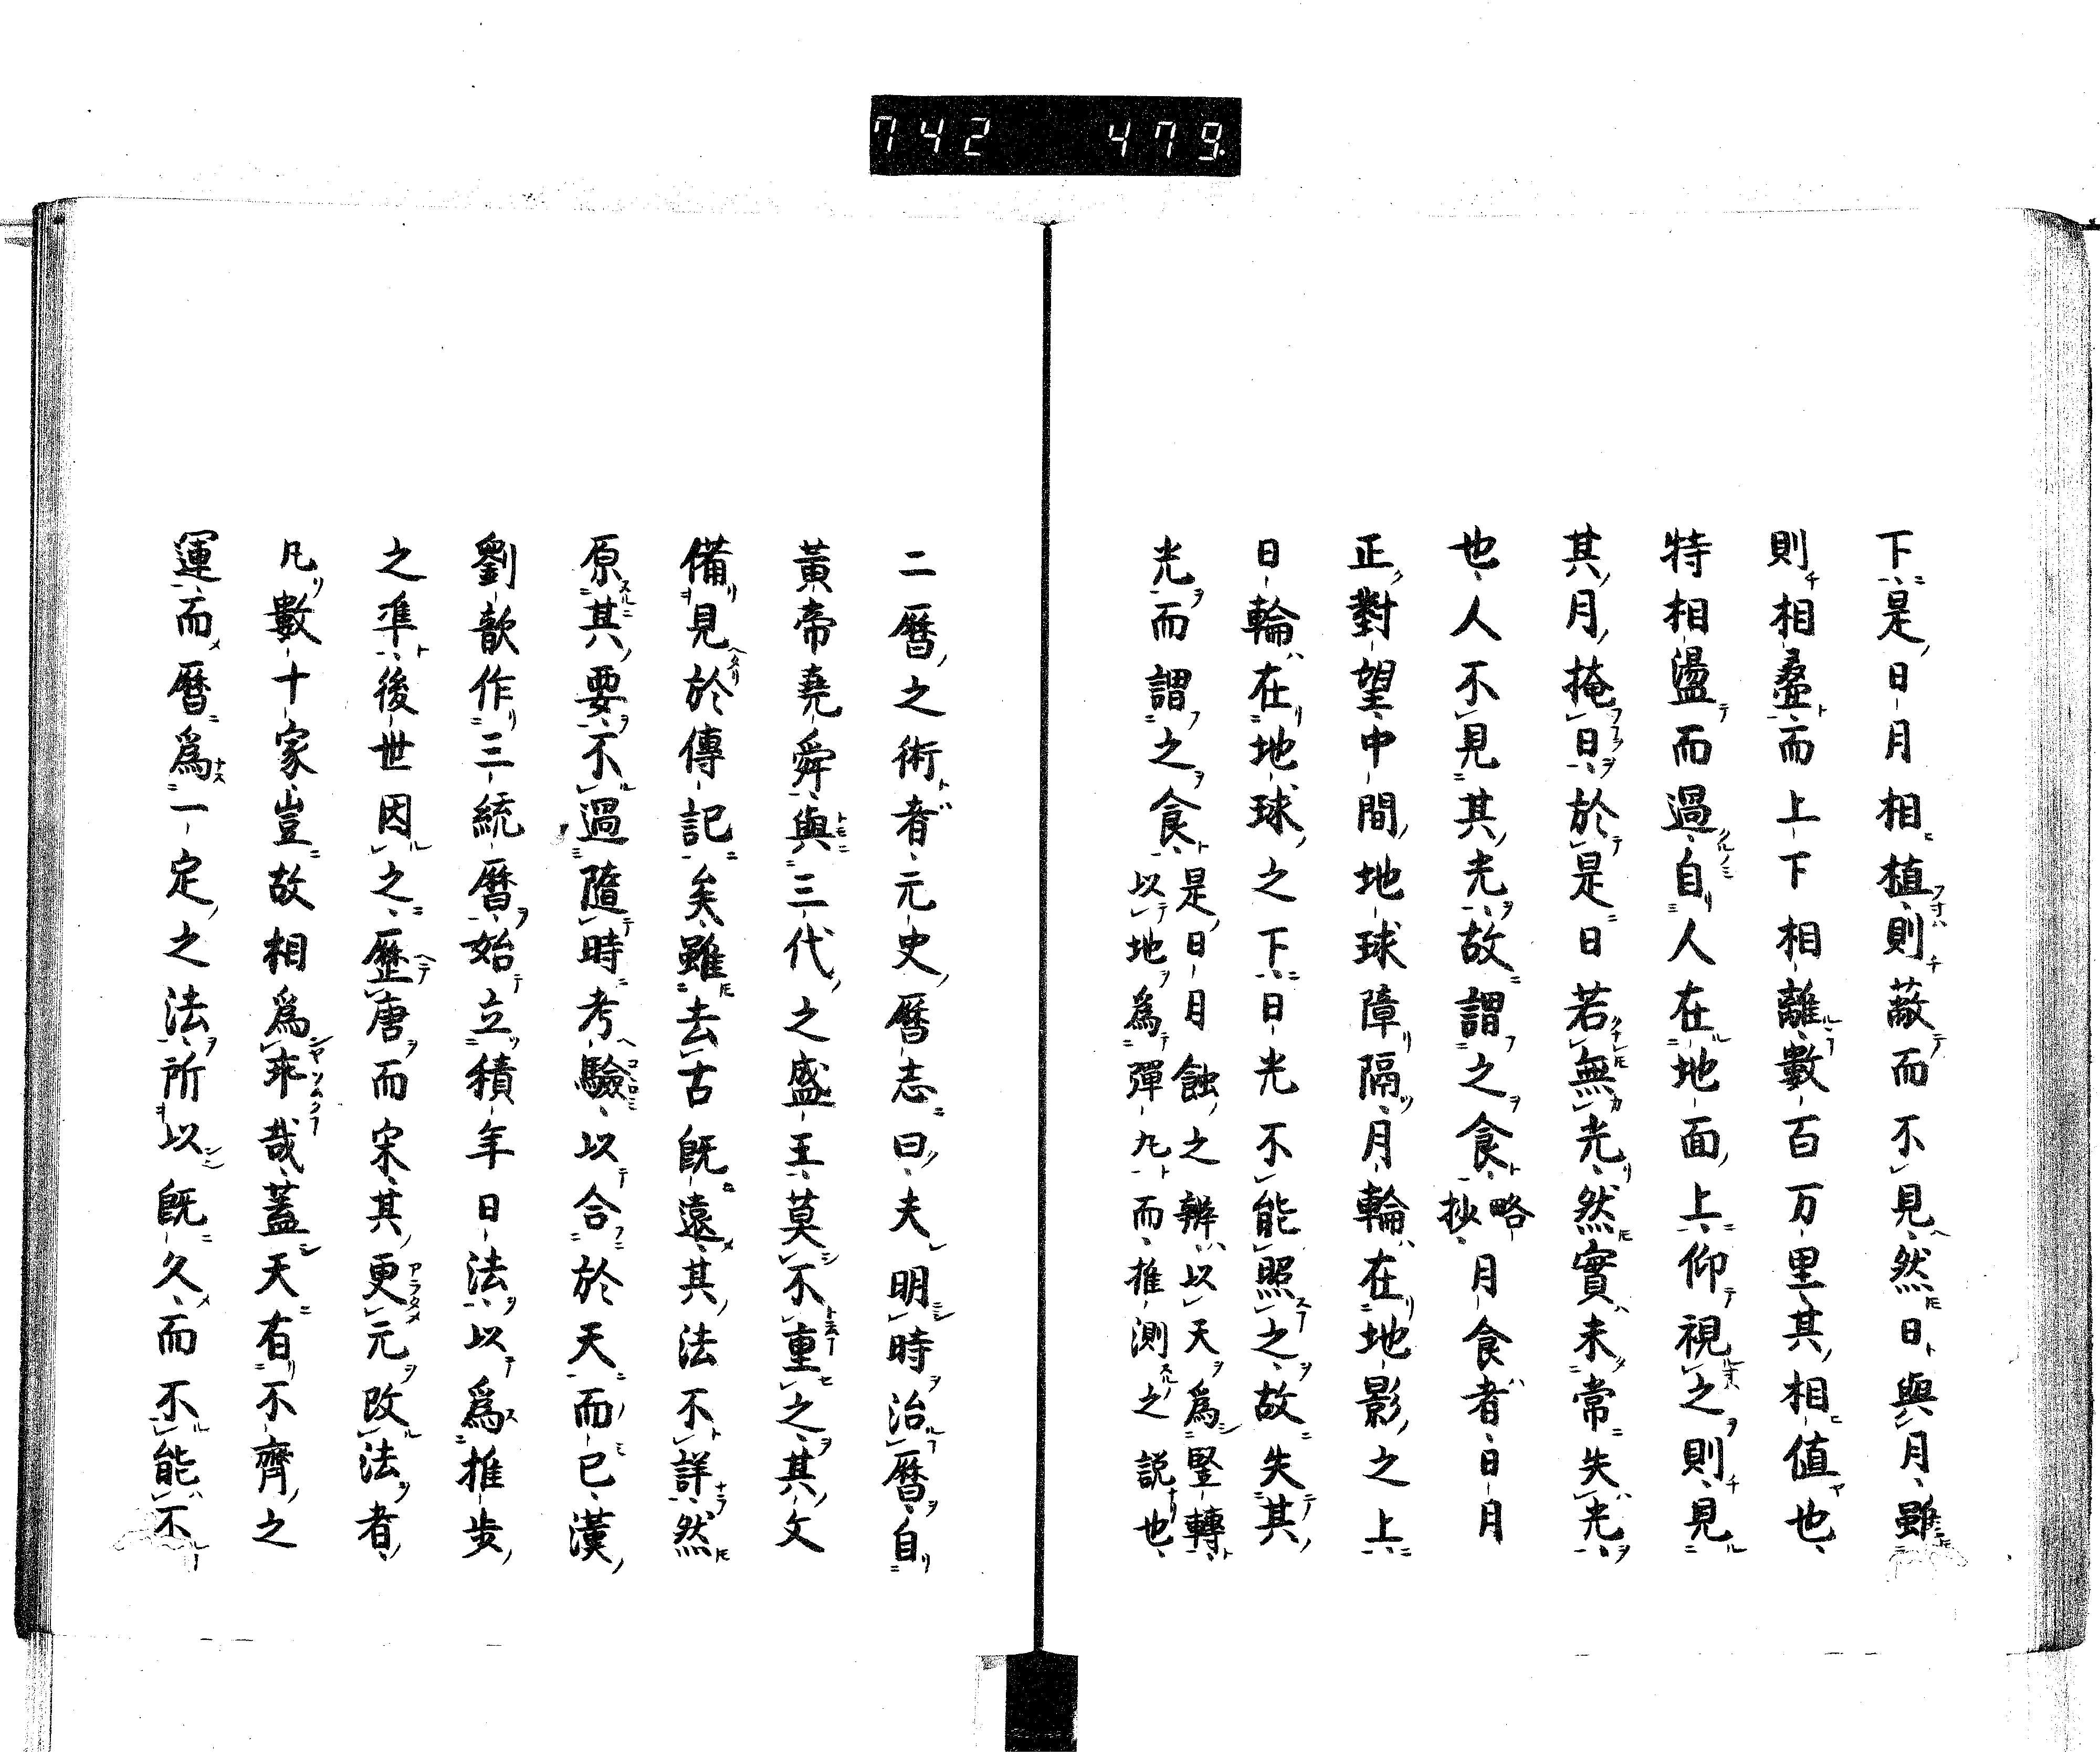 742 479.
下是日月相植則蔽而不見然日與月雖
則相疊而上下相離數百万里其相値也
特相盪而過自人在地面上仰視之則見
其月掩日於是日若無光然實未常失光
也人不見其光故謂之食略抄月食者日月
正對望中間地球障隔月輪在地影之上
日輪在地球之下日光不能照之故失其
光而謂之食是日月蝕之辨以天爲竪轉
以地爲彈丸而推測之説也
二曆之術者元史曆志曰夫明時治曆自
黃帝堯舜與三代之盛王莫不重之其文
備見於傳記矣雖去古既遠其法不詳然
原其要不過隨時考驗以合於天而已漢
劉歆作三統曆始立積年日法以爲推歩
之準後世因之歷唐而宋其更元改法者
凡數十家豈故相爲乖哉蓋天有不齊之
運而曆爲一定之法所以既久而不能不